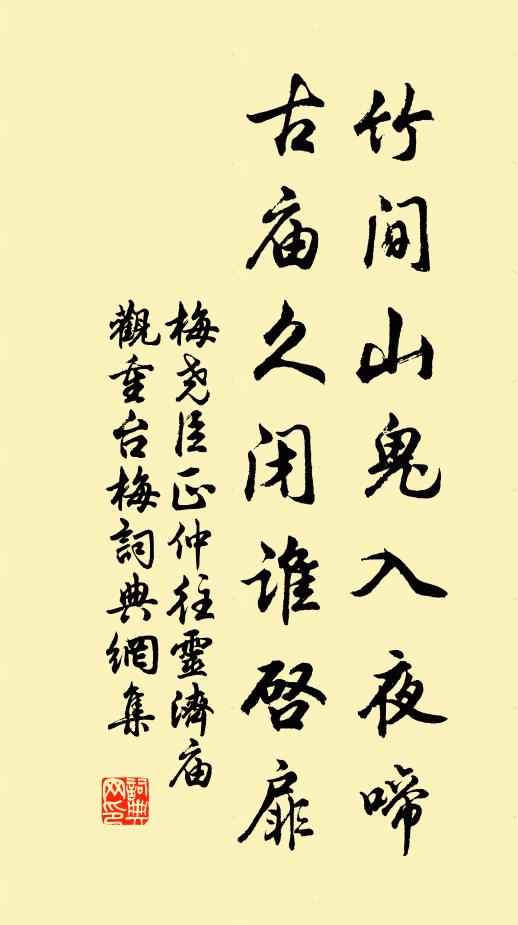 竹间山鬼入夜啼
古庙久闭谁启扉
梅尧臣正仲往靈濟庙
觀重台梅詞典網集
詞典网印